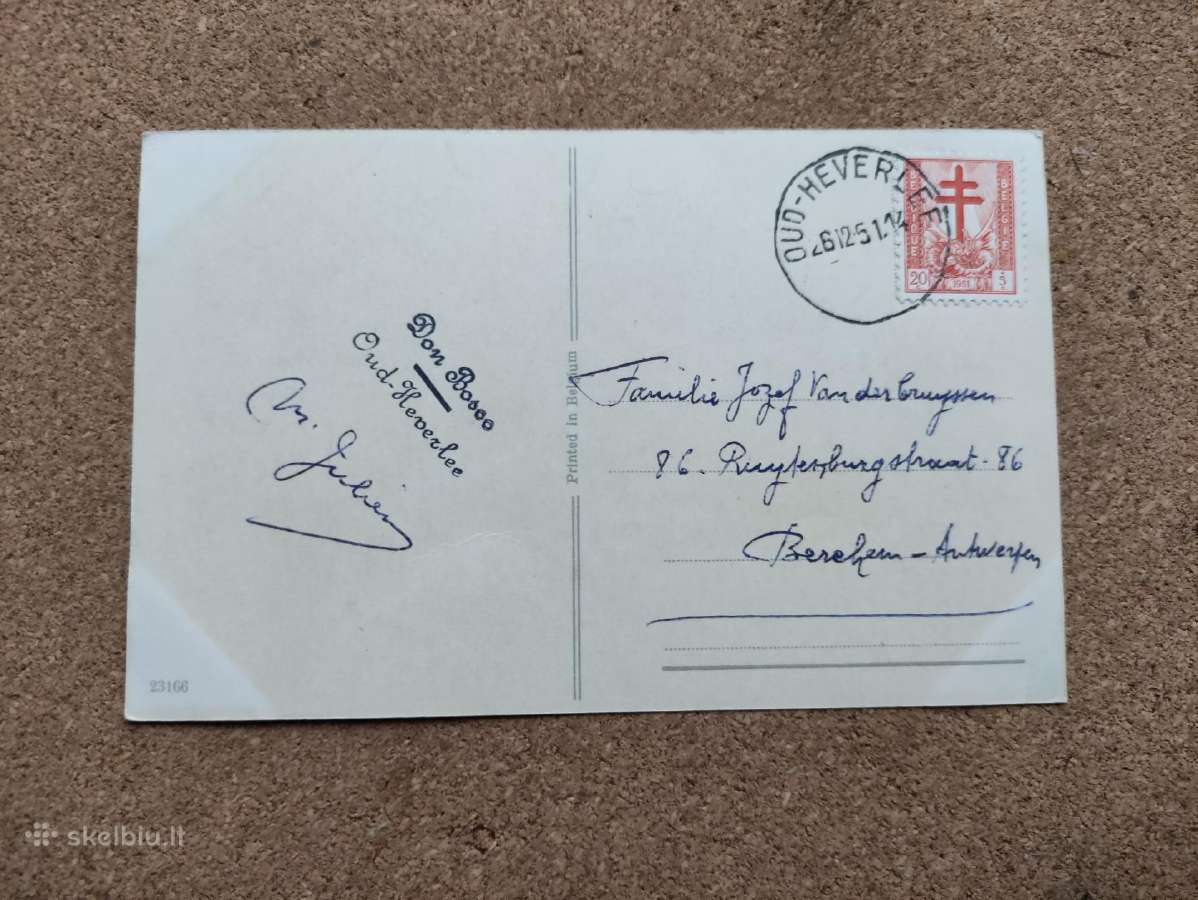 OUD-HEVERLEE
26 12-51.14
BELGIQUE
BELGIË
20
1951
5
Don Bosco
Oud-Heverlee
Julien
Printed in Belgium
Familie Jozef Vanderbruyssen
86. Ruytenburgstraat. 86
Berchem - Antwerpen
23166
skelbiu.lt